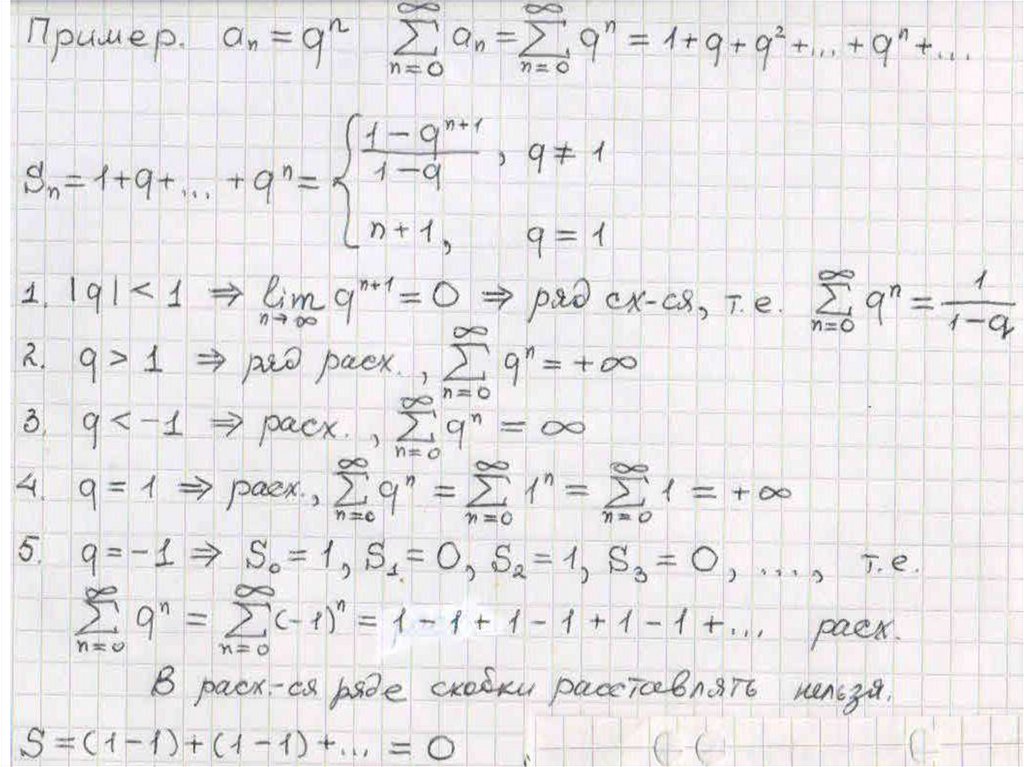 Пример. aₙ = qⁿ ∑_{n=0}^{∞} aₙ = ∑_{n=0}^{∞} qⁿ = 1 + q + q² + ... + qⁿ + ...
Sₙ = 1 + q + ... + qⁿ = { (1 − qⁿ⁺¹)/(1 − q), q ≠ 1
n + 1, q = 1
1. |q| < 1 ⇒ lim_{n→∞} qⁿ⁺¹ = 0 ⇒ ряд сх-ся, т.е. ∑_{n=0}^{∞} qⁿ = 1/(1 − q)
2. q > 1 ⇒ ряд расх., ∑_{n=0}^{∞} qⁿ = +∞
3. q < −1 ⇒ расх., ∑_{n=0}^{∞} qⁿ = ∞
4. q = 1 ⇒ расх., ∑_{n=0}^{∞} qⁿ = ∑_{n=0}^{∞} 1ⁿ = ∑_{n=0}^{∞} 1 = +∞
5. q = −1 ⇒ S₀ = 1, S₁ = 0, S₂ = 1, S₃ = 0, ..., т.е.
∑_{n=0}^{∞} qⁿ = ∑_{n=0}^{∞} (−1)ⁿ = 1 − 1 + 1 − 1 + 1 − 1 + ... расх.
В расх.-ся ряде скобки расставлять нельзя.
S = (1 − 1) + (1 − 1) + ... = 0